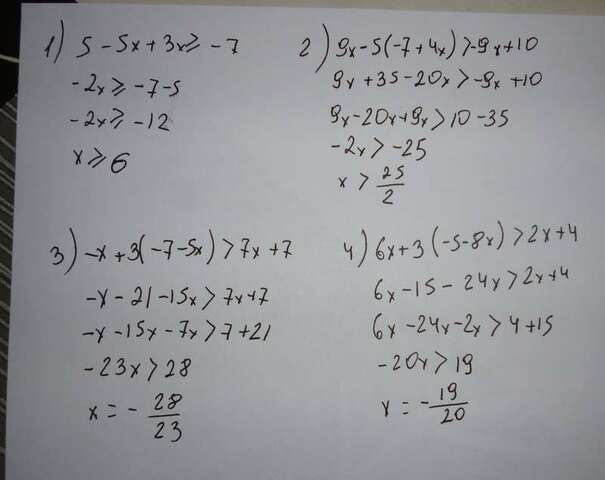 1) 5 - 5x + 3x ≥ -7
-2x ≥ -7-5
-2x ≥ -12
x ≥ 6
2) 9x - 5(-7 + 4x) > -9x + 10
9x + 35 - 20x > -9x + 10
9x - 20x + 9x > 10 - 35
-2x > -25
x > 25/2
3) -x + 3(-7 - 5x) > 7x + 7
-x - 21 - 15x > 7x + 7
-x - 15x - 7x > 7 + 21
-23x > 28
x = - 28/23
4) 6x + 3(-5 - 8x) > 2x + 4
6x - 15 - 24x > 2x + 4
6x - 24x - 2x > 4 + 15
-20x > 19
x = - 19/20